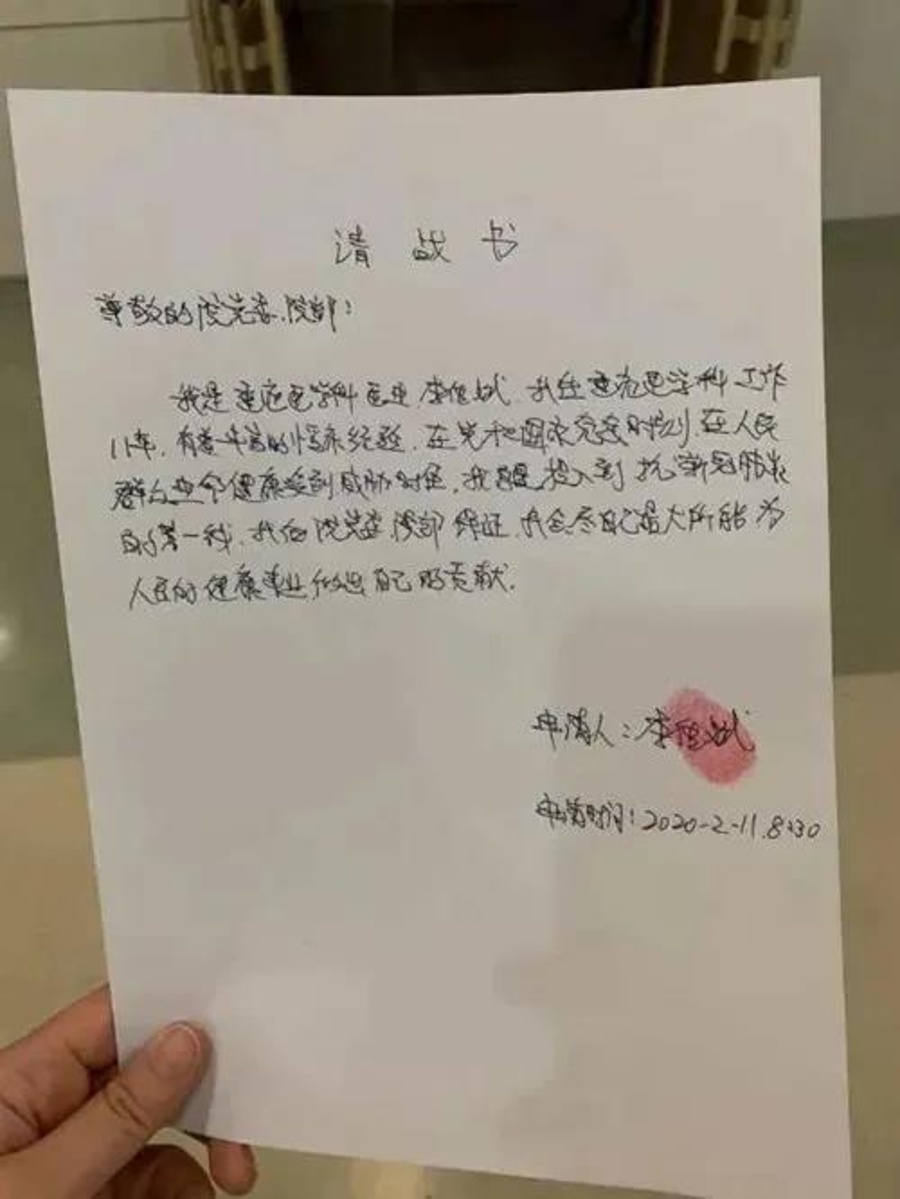 请战书
尊敬的院党委、院部：
我是重症医学科医生李恒斌，我在重症医学科工作
11年，有着丰富的临床经验，在党和国家危难时刻，在人民
群众生命健康受到威胁时候，我愿投入到抗新冠肺炎
的第一线，我向院党委院部保证，我会尽自己最大所能为
人民的健康事业做出自己的贡献.
申请人：李斌
申请时间：2020-2-11.8:30